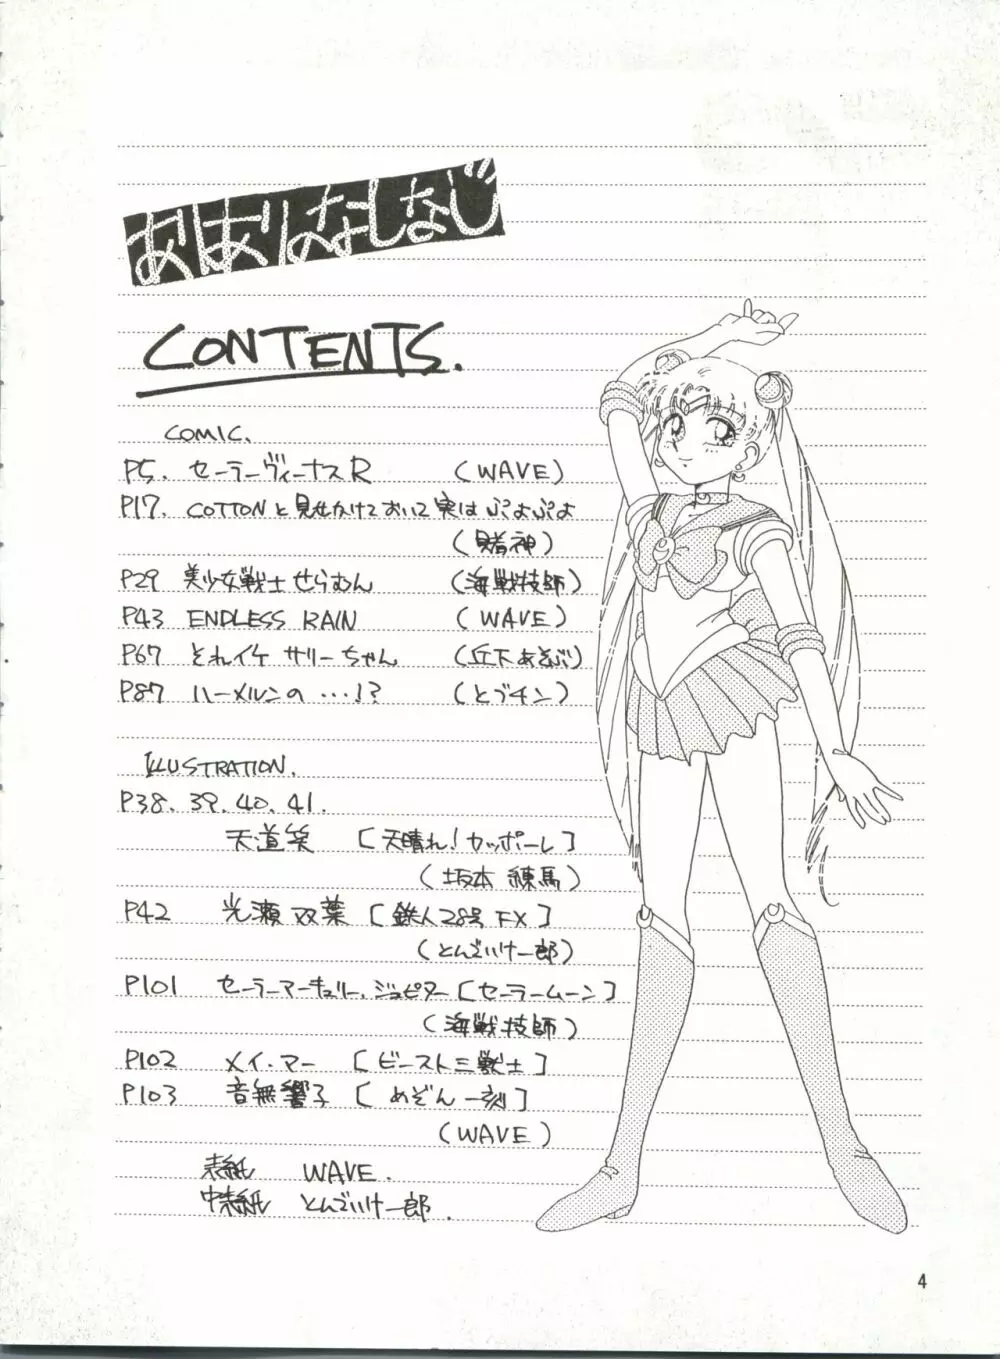 おはありなしなじ
CONTENTS.
COMIC.
P5. セーラーヴィーナスR (WAVE)
P17. COTTONと見せかけておいて実は ぷよぷよ
(賭神)
P29 美少女戦士せらむん (海戦技師)
P43 ENDLESS RAIN (WAVE)
P67 それイケ サリーちゃん (丘下あそぶ)
P87 ハーメルンの …!? (とづチン)
ILLUSTRATION.
P38. 39. 40. 41.
天道笑 [天晴れ!カッポーレ]
(坂本 練馬)
P42 光瀬 双葉 [鉄人28号 FX]
(とんでいけ一郎)
P101 セーラーマーキュリー、ジュピター [セーラームーン]
(海戦技師)
P102 メイ・マー [ビースト三獣士]
P103 音無響子 [めぞん一刻]
(WAVE)
表紙 WAVE.
中表紙 とんでいけ一郎.
4